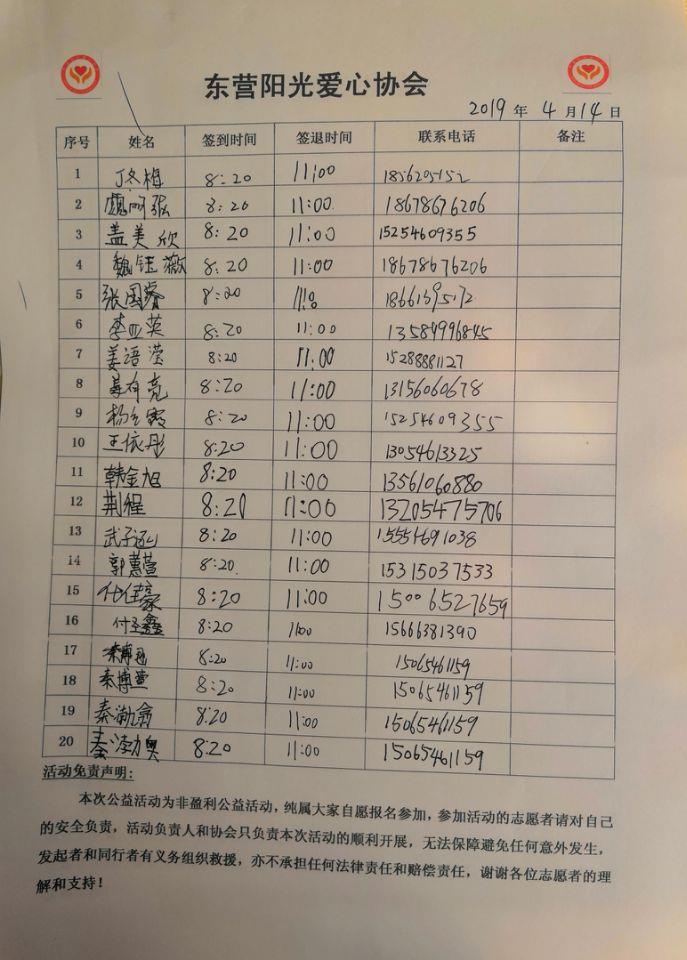 东营阳光爱心协会
2019 年 4 月 14 日
序号 姓名 签到时间 签退时间 联系电话 备注
1 丁冬梅 8:20 11:00
2 8:20 11:00 18678676206
3 盖美欣 8:20 11:00 15254609355
4 魏钰薇 8:20 11:00 18678676206
5 张国睿 8:20
6 李亚英 8:20 11:00 13589996845
7 姜语滢 8:20 11:00 15288881127
8 8:20 11:00 13156060678
9 8:20 11:00 15254609355
10 王依彤 8:20 11:00 13054613325
11 韩金旭 8:20 11:00 13561060880
12 荆程 8:20 11:00 13205475706
13 8:20 11:00 15554691038
14 郭蕙萱 8:20 11:00 15315037533
15 8:20 11:00 15006527659
16 8:20 11:00 15666381390
17 8:20 11:00 15065461159
18 秦博萱 8:20 11:00 15065461159
19 8:20 11:00 15065461159
20 8:20 11:00 15065461159
活动免责声明:
本次公益活动为非盈利公益活动，纯属大家自愿报名参加，参加活动的志愿者请对自己
的安全负责，活动负责人和协会只负责本次活动的顺利开展，无法保障避免任何意外发生，
发起者和同行者有义务组织救援，亦不承担任何法律责任和赔偿责任，谢谢各位志愿者的理
解和支持！